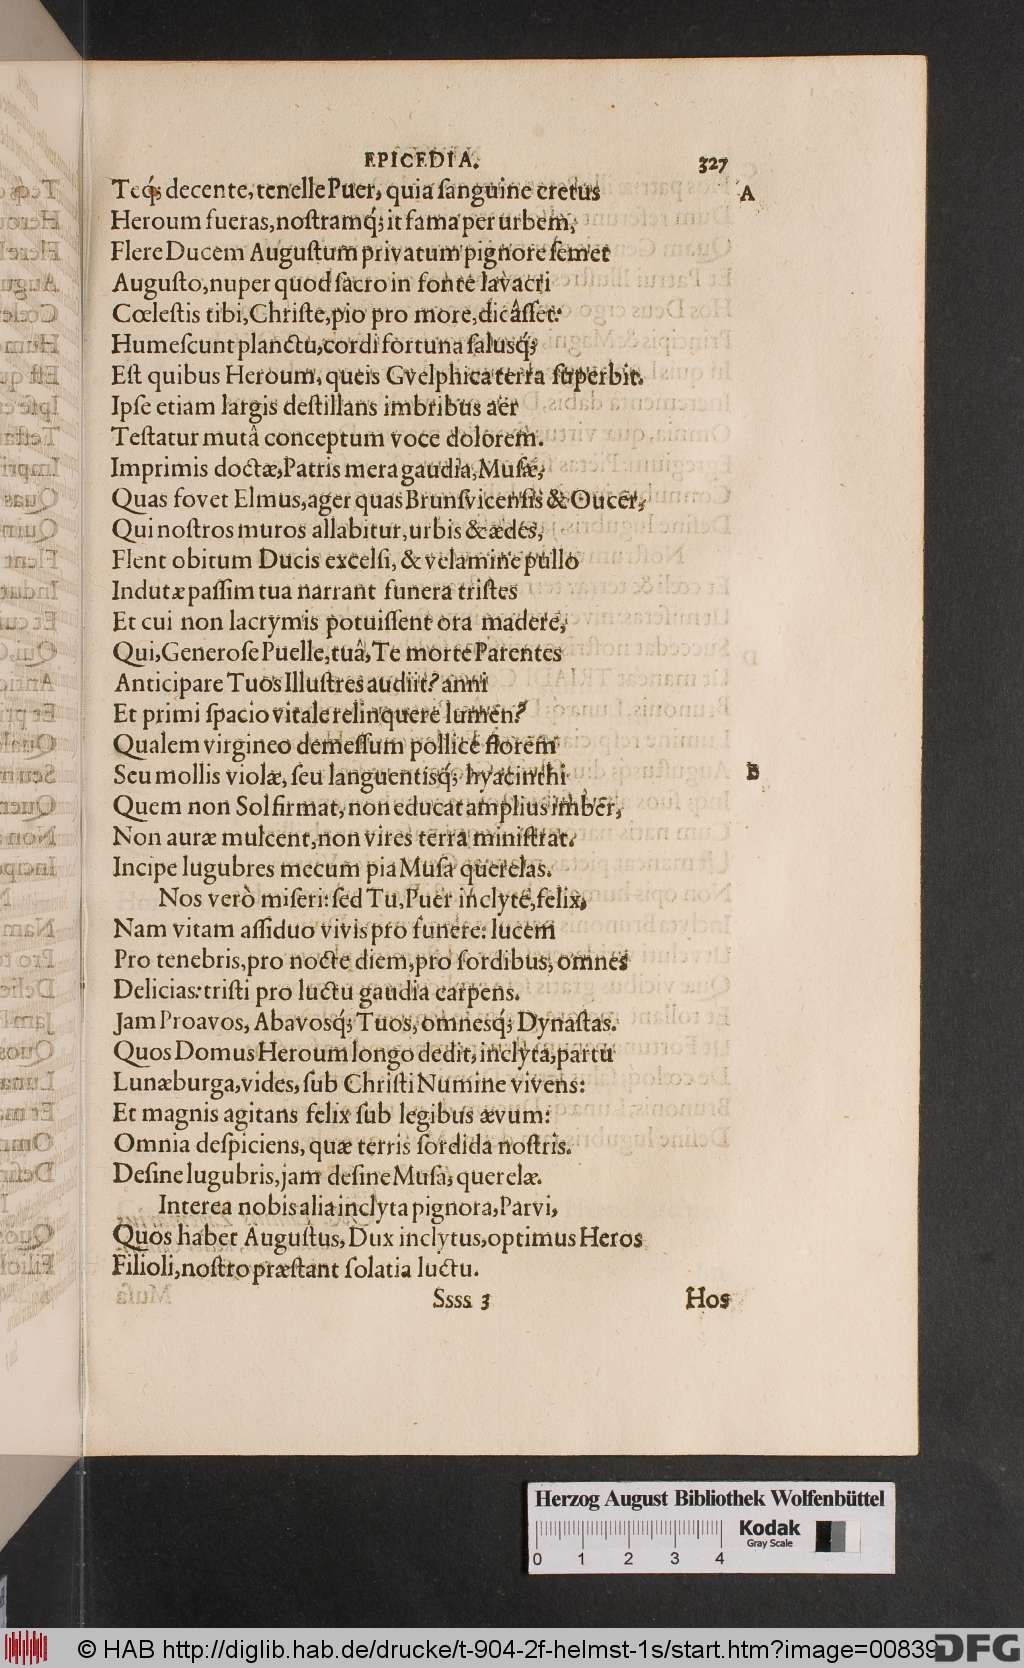 EPICEDIA. 327
Teq́; decente, tenelle Puer, quia ſanguine cretus A
Heroum fueras, noſtramq́; it fama per urbem,
Flere Ducem Auguſtum privatum pignore ſemet
Auguſto, nuper quod ſacro in fonte lavacri
Cœleſtis tibi, Chriſte, pio pro more, dicâſſet:
Humeſcunt planctu, cordi fortuna ſalusq́;
Eſt quibus Heroum, queis Gvelphica terra ſuperbit.
Ipſe etiam largis deſtillans imbribus aër
Teſtatur mutâ conceptum voce dolorem.
Imprimis doctæ, Patris mera gaudia, Muſæ,
Quas fovet Elmus, ager quas Brunſvicenſis & Oucer,
Qui noſtros muros allabitur, urbis & ædes,
Flent obitum Ducis excelſi, & velamine pullo
Indutæ paſſim tua narrant funera triſtes
Et cui non lacrymis potuiſſent ora madere,
Qui, Generoſe Puelle, tuâ, Te morte Parentes
Anticipare Tuos Illuſtres audiit? anni
Et primi ſpacio vitale relinquere lumen?
Qualem virgineo demeſſum pollice florem
Seu mollis violæ, ſeu languentisq́; hyacinthi B
Quem non Sol firmat, non educat amplius imber,
Non auræ mulcent, non vires terra miniſtrat.
Incipe lugubres mecum pia Muſa querelas.
Nos verò miſeri: ſed Tu, Puer inclyte, felix,
Nam vitam aſſiduo vivis pro funere: lucem
Pro tenebris, pro nocte diem, pro ſordibus, omnes
Delicias: triſti pro luctu gaudia carpens.
Jam Proavos, Abavosq́; Tuos, omnesq́; Dynaſtas.
Quos Domus Heroum longo dedit, inclyta, partu
Lunæburga, vides, ſub Chriſti Numine vivens:
Et magnis agitans felix ſub legibus ævum:
Omnia deſpiciens, quæ terris ſordida noſtris.
Deſine lugubris, jam deſine Muſa, querelæ.
Interea nobis alia inclyta pignora, Parvi,
Quos habet Auguſtus, Dux inclytus, optimus Heros
Filioli, noſtro præſtant ſolatia luctu.
Ssss 3 Hos
Herzog August Bibliothek Wolfenbüttel
0 1 2 3 4
Kodak
Gray Scale
© HAB http://diglib.hab.de/drucke/t-904-2f-helmst-1s/start.htm?image=00839
DFG